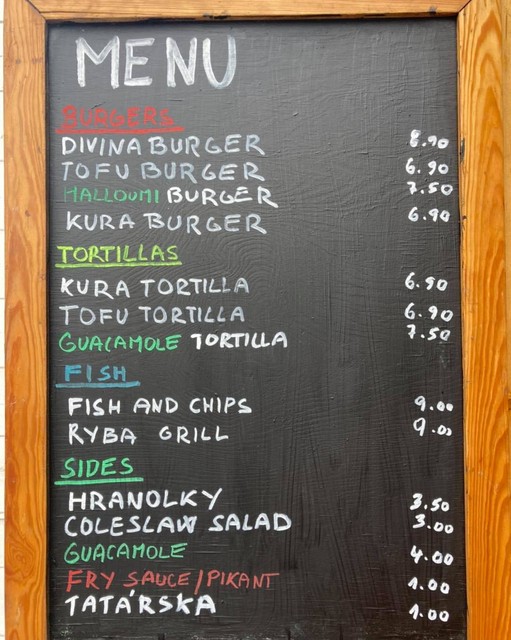 MENU
BURGERS
DIVINA BURGER 8.90
TOFU BURGER 6.90
HALLOUMI BURGER 7.50
KURA BURGER 6.90
TORTILLAS
KURA TORTILLA 6.90
TOFU TORTILLA 6.90
GUACAMOLE TORTILLA 7.50
FISH
FISH AND CHIPS 9.00
RYBA GRILL 9.00
SIDES
HRANOLKY 3.50
COLESLAW SALAD 3.00
GUACAMOLE 4.00
FRY SAUCE/PIKANT 1.00
TATÁRSKA 1.00